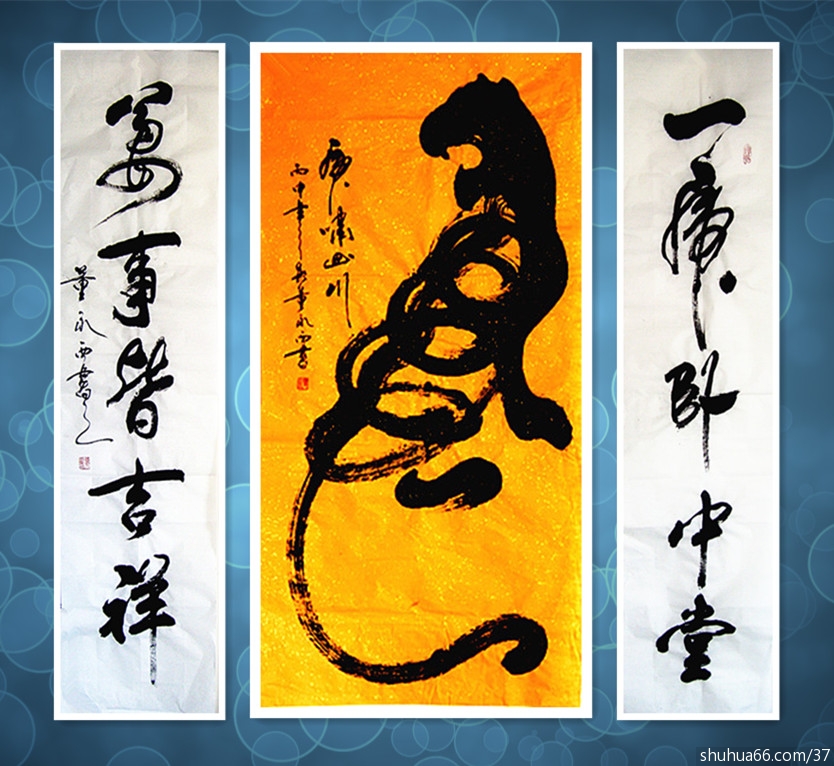 一虎卧中堂
虎
虎嘯山川
丙申 董永西書
萬事皆吉祥
董永西書
shuhua66.com/37